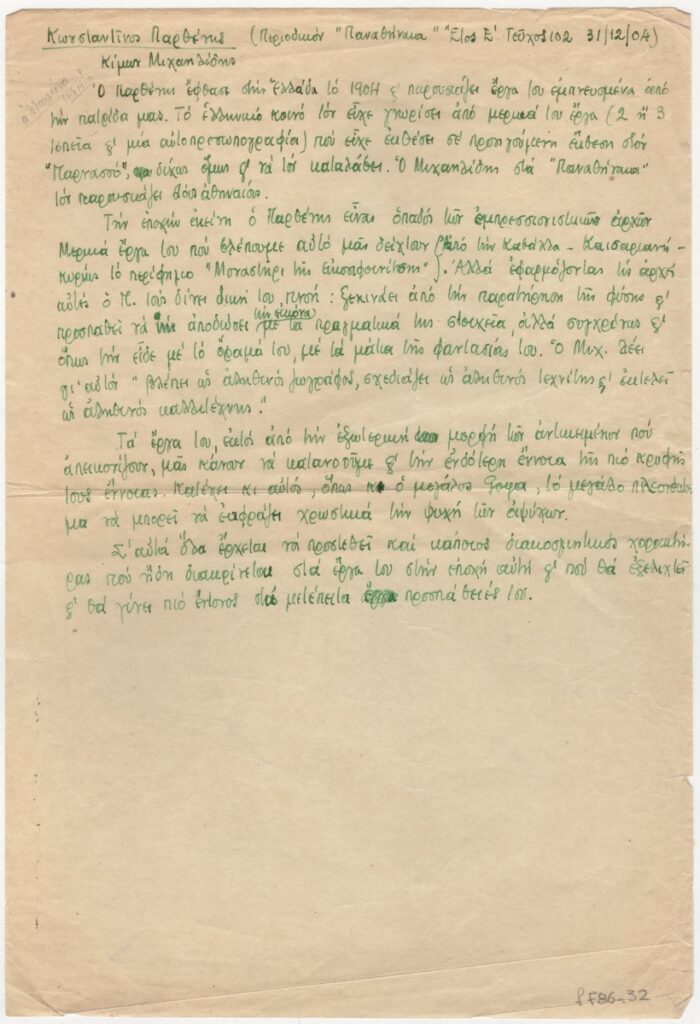 Κωνσταντῖνος Παρθένης (Περιοδικόν "Παναθήναια" Ἔτος Ε' Τεῦχος 102 31/12/04)
Κίμων Μιχαηλίδης
Ὁ Παρθένης ἔφθασε στήν Ἑλλάδα τό 1904 & παρουσιάζει ἔργα του ἐμπνευσμένα ἀπό
τήν πατρίδα μας. Τό ἑλληνικό κοινό τόν εἶχε γνωρίσει ἀπό μερικά του ἔργα (2 ἤ 3
τοπεῖα & μία αὐτοπροσωπογραφία) πού εἶχε ἐκθέσει σέ προηγούμενη ἔκθεση στόν
"Παρνασσό", δίχως ὅμως & νά τόν καταλάβει. Ὁ Μιχαηλίδης στά "Παναθήναια"
τόν παρουσιάζει στούς ἀθηναίους.
Τήν ἐποχήν ἐκείνη ὁ Παρθένης εἶναι ὀπαδός τῶν ἐμπρεσσιονιστικῶν ἀρχῶν
Μερικά ἔργα του πού βλέπουμε αὐτό μᾶς δείχνουν (ἀπό τήν Καβάλλα - Καισαριανή -
κυρίως τό περίφημο "Μοναστήρι τῆς Καισαριανῆς"). Ἀλλά ἐφαρμόζοντας τίς ἀρχές
αὐτές ὁ Π. τούς δίνει δική του πνοή : ξεκινάει ἀπό τήν παρατήρηση τῆς φύσης &
προσπαθεῖ νά τήν ἀποδώσει τήν εἰκόνα μέ τά πραγματικά της στοιχεῖα, ἀλλά συγχρόνως &
ὅπως τήν εἶδε μέ τό ὅραμά του, μέ τά μάτια τῆς φαντασίας του. Ὁ Μιχ. λέει
γι' αὐτόν "βλέπει ὡς ἀληθινός ζωγράφος, σχεδιάζει ὡς ἀληθινός τεχνίτης & ἐκτελεῖ
ὡς ἀληθινός καλλιτέχνης."
Τά ἔργα του, ἐκτός ἀπό τήν ἐξωτερική μορφή τῶν ἀντικειμένων πού
ἀπεικονίζουν, μᾶς κάνουν νά κατανοοῦμε & τήν ἐνδότερη ἔννοια τῆς πιό κρυφῆς
τους ἔννοιας. Κατέχει κι αὐτός, ὅπως ὁ μεγάλος, τό μεγάλο πλεονέκτη-
μα νά μπορεῖ νά ἐκφράζει χρωστικά τήν ψυχή τῶν ἀψύχων.
Σ' αὐτά ὅλα ἔρχεται νά προστεθεῖ καί κάποιος διακοσμητικός χαρακτή-
ρας πού ἤδη διακρίνεται στά ἔργα του στήν ἐποχή αὐτή & πού θά ἐξελιχτεῖ
& θά γίνει πιό ἔντονος στίς μετέπειτα προσπάθειές του.
F86-32